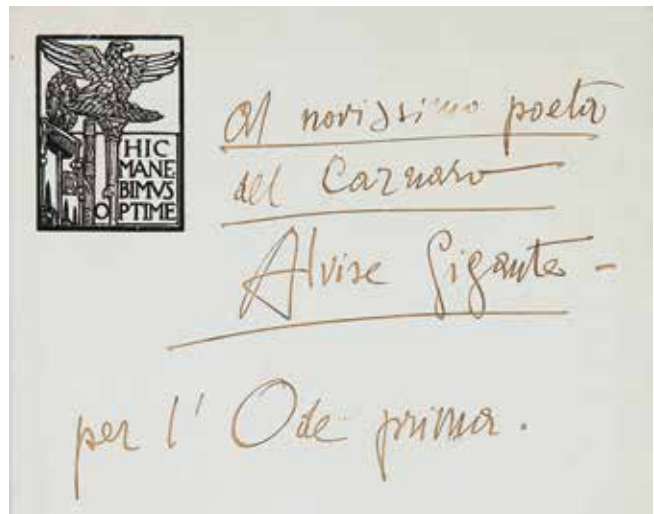 HIC
MANE
BIMVS
OPTIME
Al novissimo poeta
del Carnaro
Alvise Gigante -
per l' Ode prima.